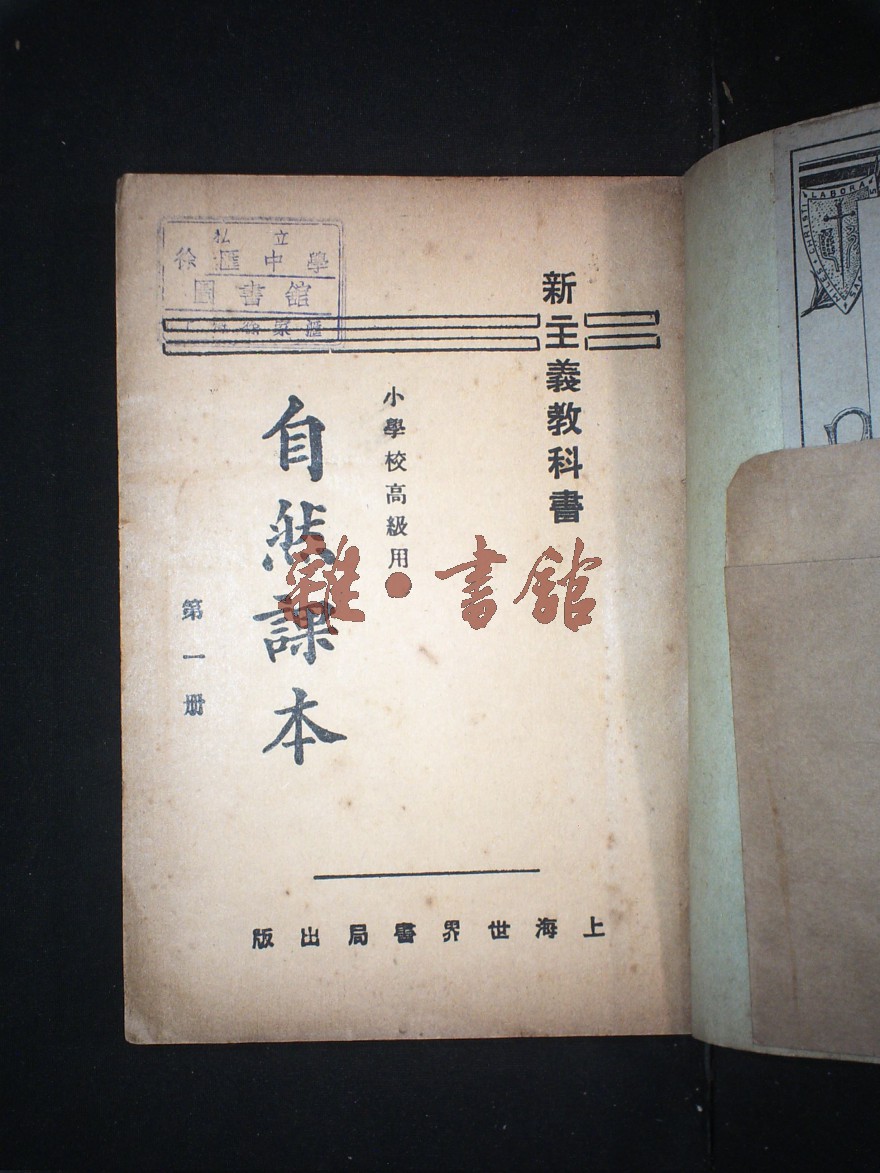 新主義教科書
小學校高級用
自然課本
第一册
上海世界書局出版
私立
徐匯中學
圖書舘
上海徐家匯
雜·書館
LABORA
MILES CHRISTI